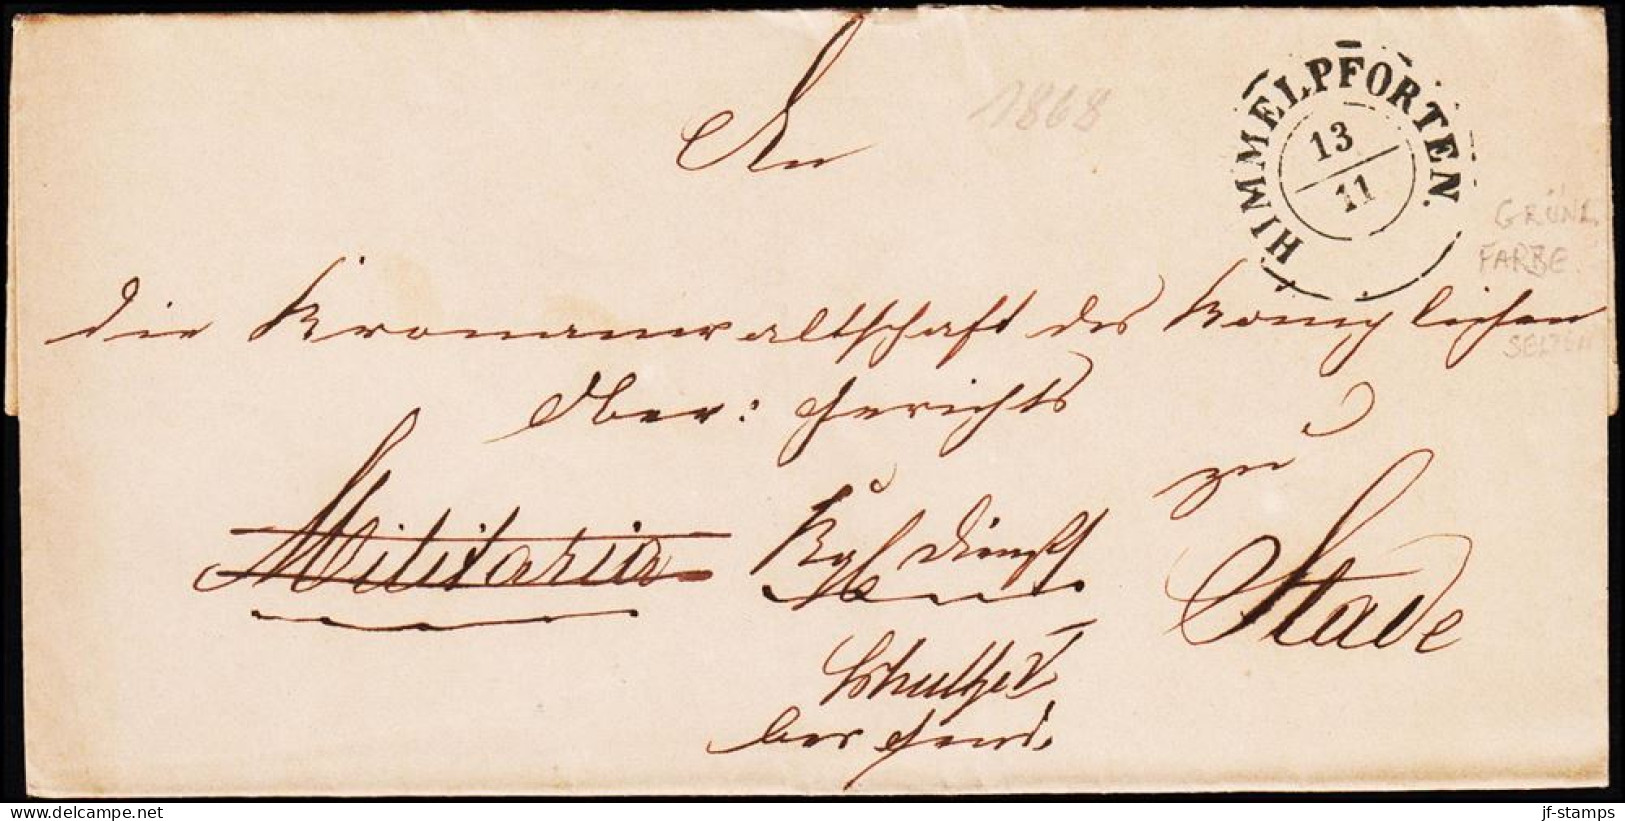 An
1868
HIMMELPFORTEN.
13
11
GRÜNL.
FARBE
SELTEN
die Kronanwaltschaft des Königlichen
Ober: Gerichts
zu
Militaria
Kgl Dienst
Stade
Schulze
Ber Gend.
jf-stamps